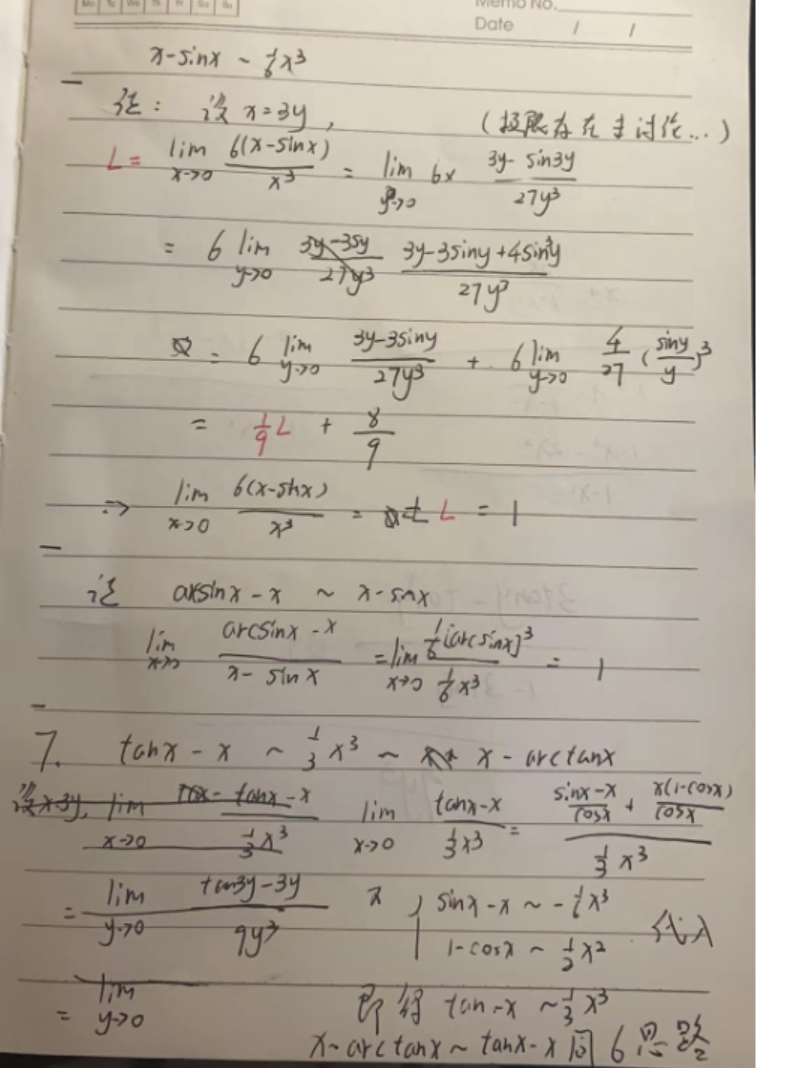 Mo Tu We Th Fr Sa Su
Memo No.
Date / /
x-sinx ~ 1/6 x³
证: 设 x=3y, (极限存在要讨论...)
L = lim x→0 6(x-sinx)/x³ = lim y→0 6× (3y-sin3y)/27y³
= 6 lim y→0 (3y-3siny+4sin³y)/27y³
= 6 lim y→0 (3y-3siny)/27y³ + 6 lim y→0 4/27 (siny/y)³
= 1/9 L + 8/9
⇒ lim x→0 6(x-sinx)/x³ = L = 1
证 arcsinx - x ~ x-sinx
lim x→0 (arcsinx - x)/(x - sinx) = lim x→0 1/6[arcsinx]³ / 1/6 x³ = 1
7. tanx - x ~ 1/3 x³ ~ x - arctanx
设x=3y, lim x→0 tanx-x / 1/3 x³ lim x→0 (tanx-x)/(1/3 x³) = ((sinx-x)/cosx + x(1-cosx)/cosx) / (1/3 x³)
= lim y→0 (tan3y-3y)/9y³又 { sinx-x ~ -1/6 x³
1-cosx ~ 1/2 x² 代入
= lim y→0 即得 tan-x ~ 1/3 x³
x-arctanx ~ tanx-x 同6思路